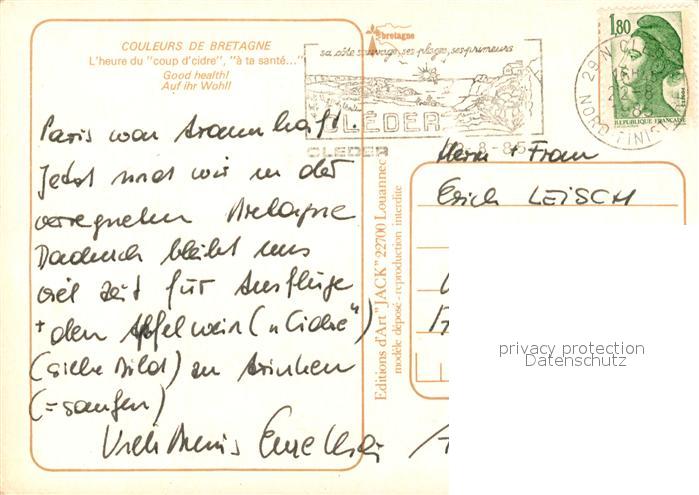 COULEURS DE BRETAGNE
L'heure du "coup d'cidre", "à ta santé..."
Good health!
Auf ihr Wohl!
bretagne
sa côte sauvage, ses plages, ses primeurs
CLÉDER
CLEDER
-8-85
1,80
REPUBLIQUE FRANÇAISE
29 N CL
NORD FINIST
Paris war traumhaft.
Jetzt sind wir in der
verregneten Bretagne
Dadurch bleibt uns
viel Zeit für Ausflüge
+ den Apfelwein ("Cidre")
(siehe Bild) zu trinken
(= saufen)
Viele
Editions d'Art "JACK" 22700 Louannec
modèle déposé - reproduction interdite
Herrn + Frau
Erich LEISCH
privacy protection
Datenschutz